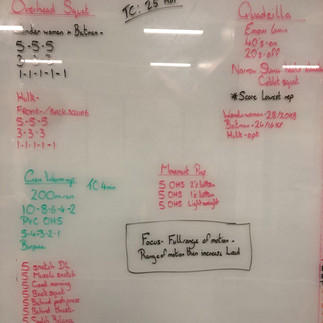 Overhead Squat
TC: 25 min
Wonder woman + Batman -
5-5-5
3-3-3
1-1-1-1-1
Hulk -
Front-/Back squat
5-5-5
3-3-3
1-1-1-1-1
Quadzilla
Emom
40s on
20s off
Narrow Stance
Goblet squat
*Score Lowest rep
Wonderwoman - 28/20kg
Batman - 24/16kg
Hulk - opt
Core Warm up
TC 4min
200m run
10-8-6-4-2
PVC OHS
5-4-3-2-1
Burpees
Movement Prep
5 OHS 2's bottom
5 OHS 1's bottom
5 OHS Light weight
Focus - Full range of motion -
Range of motion then increase Load
5 snatch DL
5 Muscle snatch
5 Good morning
5 Back squat
5 Behind push press
5 Behind thruster
5 Snatch Balance